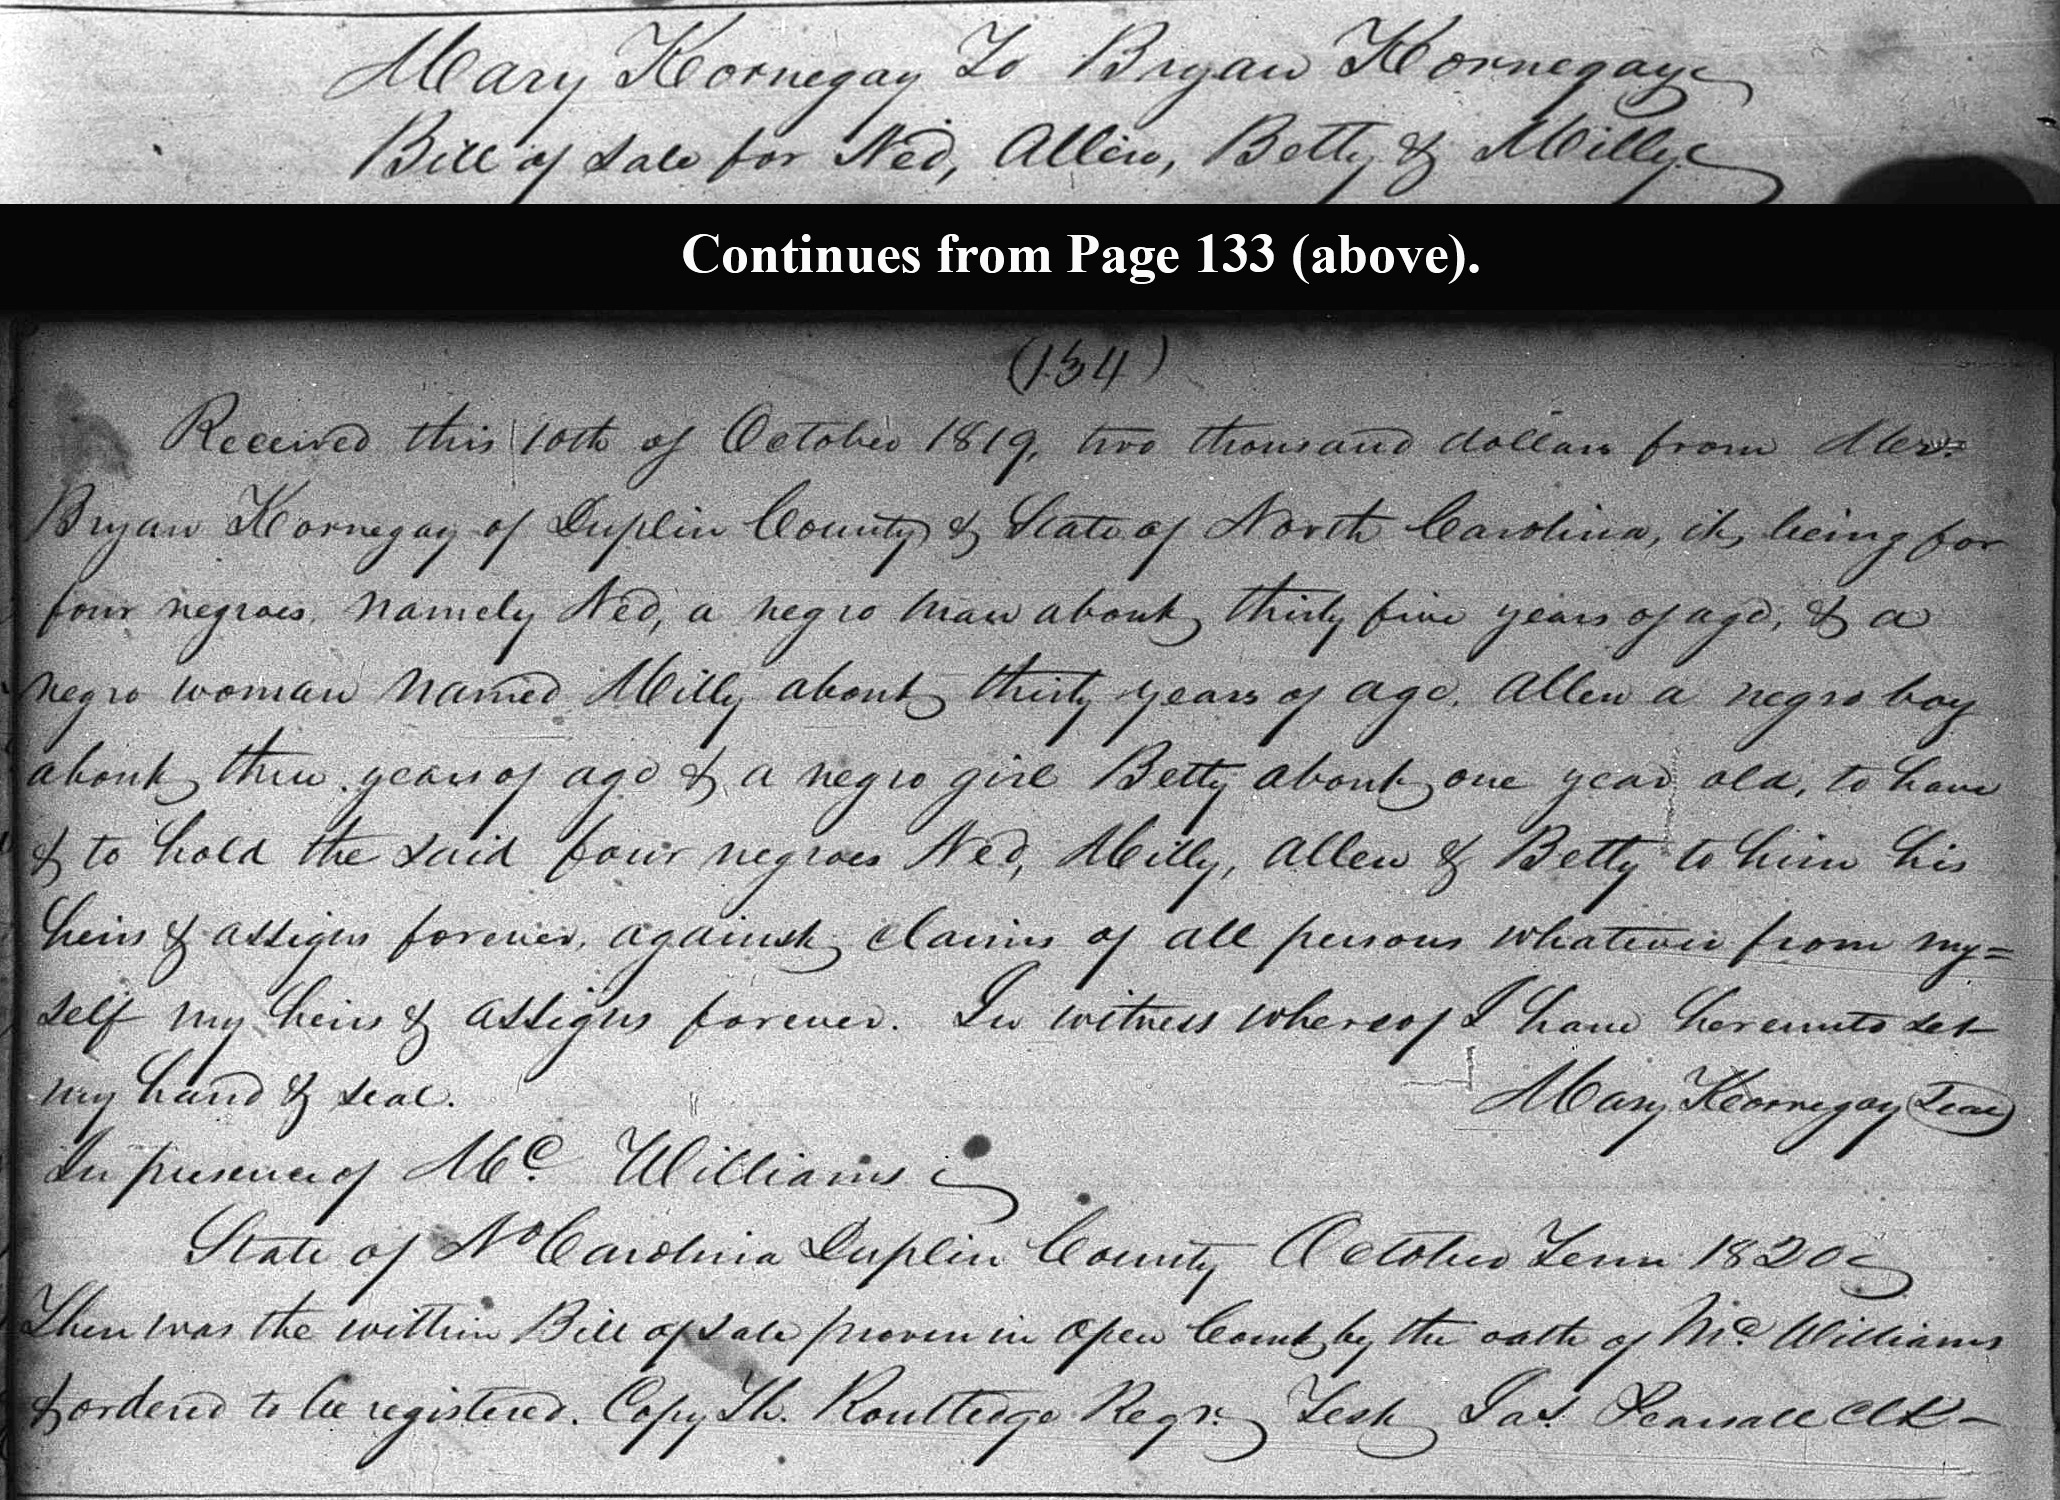 Mary Kornegay To Bryan Kornegay
Bill of Sale for Ned, Allen, Betty & Milly
Continues from Page 133 (above).
(134)
Received this 10th of October 1819, two thousand dollars from
Bryan Kornegay of Duplin County & State of North Carolina, it being for
four negroes, namely Ned, a negro man about thirty five years of age, & a
negro woman named Milly about thirty years of age, Allen a negro boy
about three years of age & a negro girl Betty about one year old, to have
& to hold the said four negroes Ned, Milly, Allen & Betty to him his
heirs & assigns forever, against claims of all persons whatever from my=
self my heirs & assigns forever. In witness whereof I have hereunto set
my hand & seal.
Mary Kornegay (Seal)
In presence of Mc. Williams
State of No Carolina Duplin County October Term 1820
Then was the within Bill of Sale proven in Open Court by the oath of Mc. Williams
& ordered to be registered. Copy Th. Routledge Regr. Test Jas. Pearsall Clk -